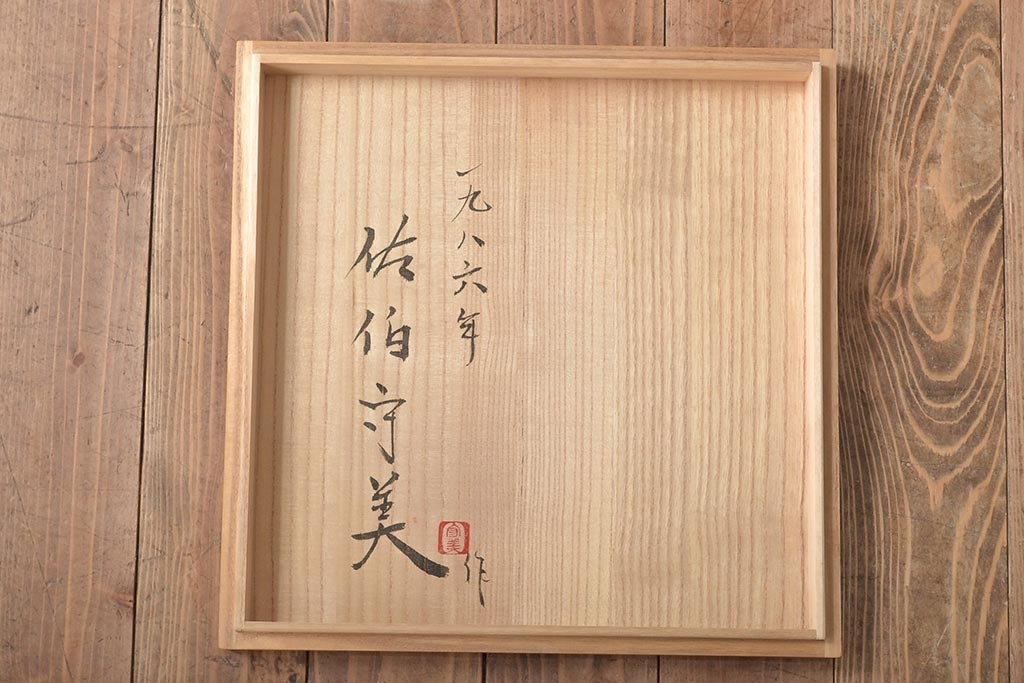 一九八六年
佐伯守美
守美
作